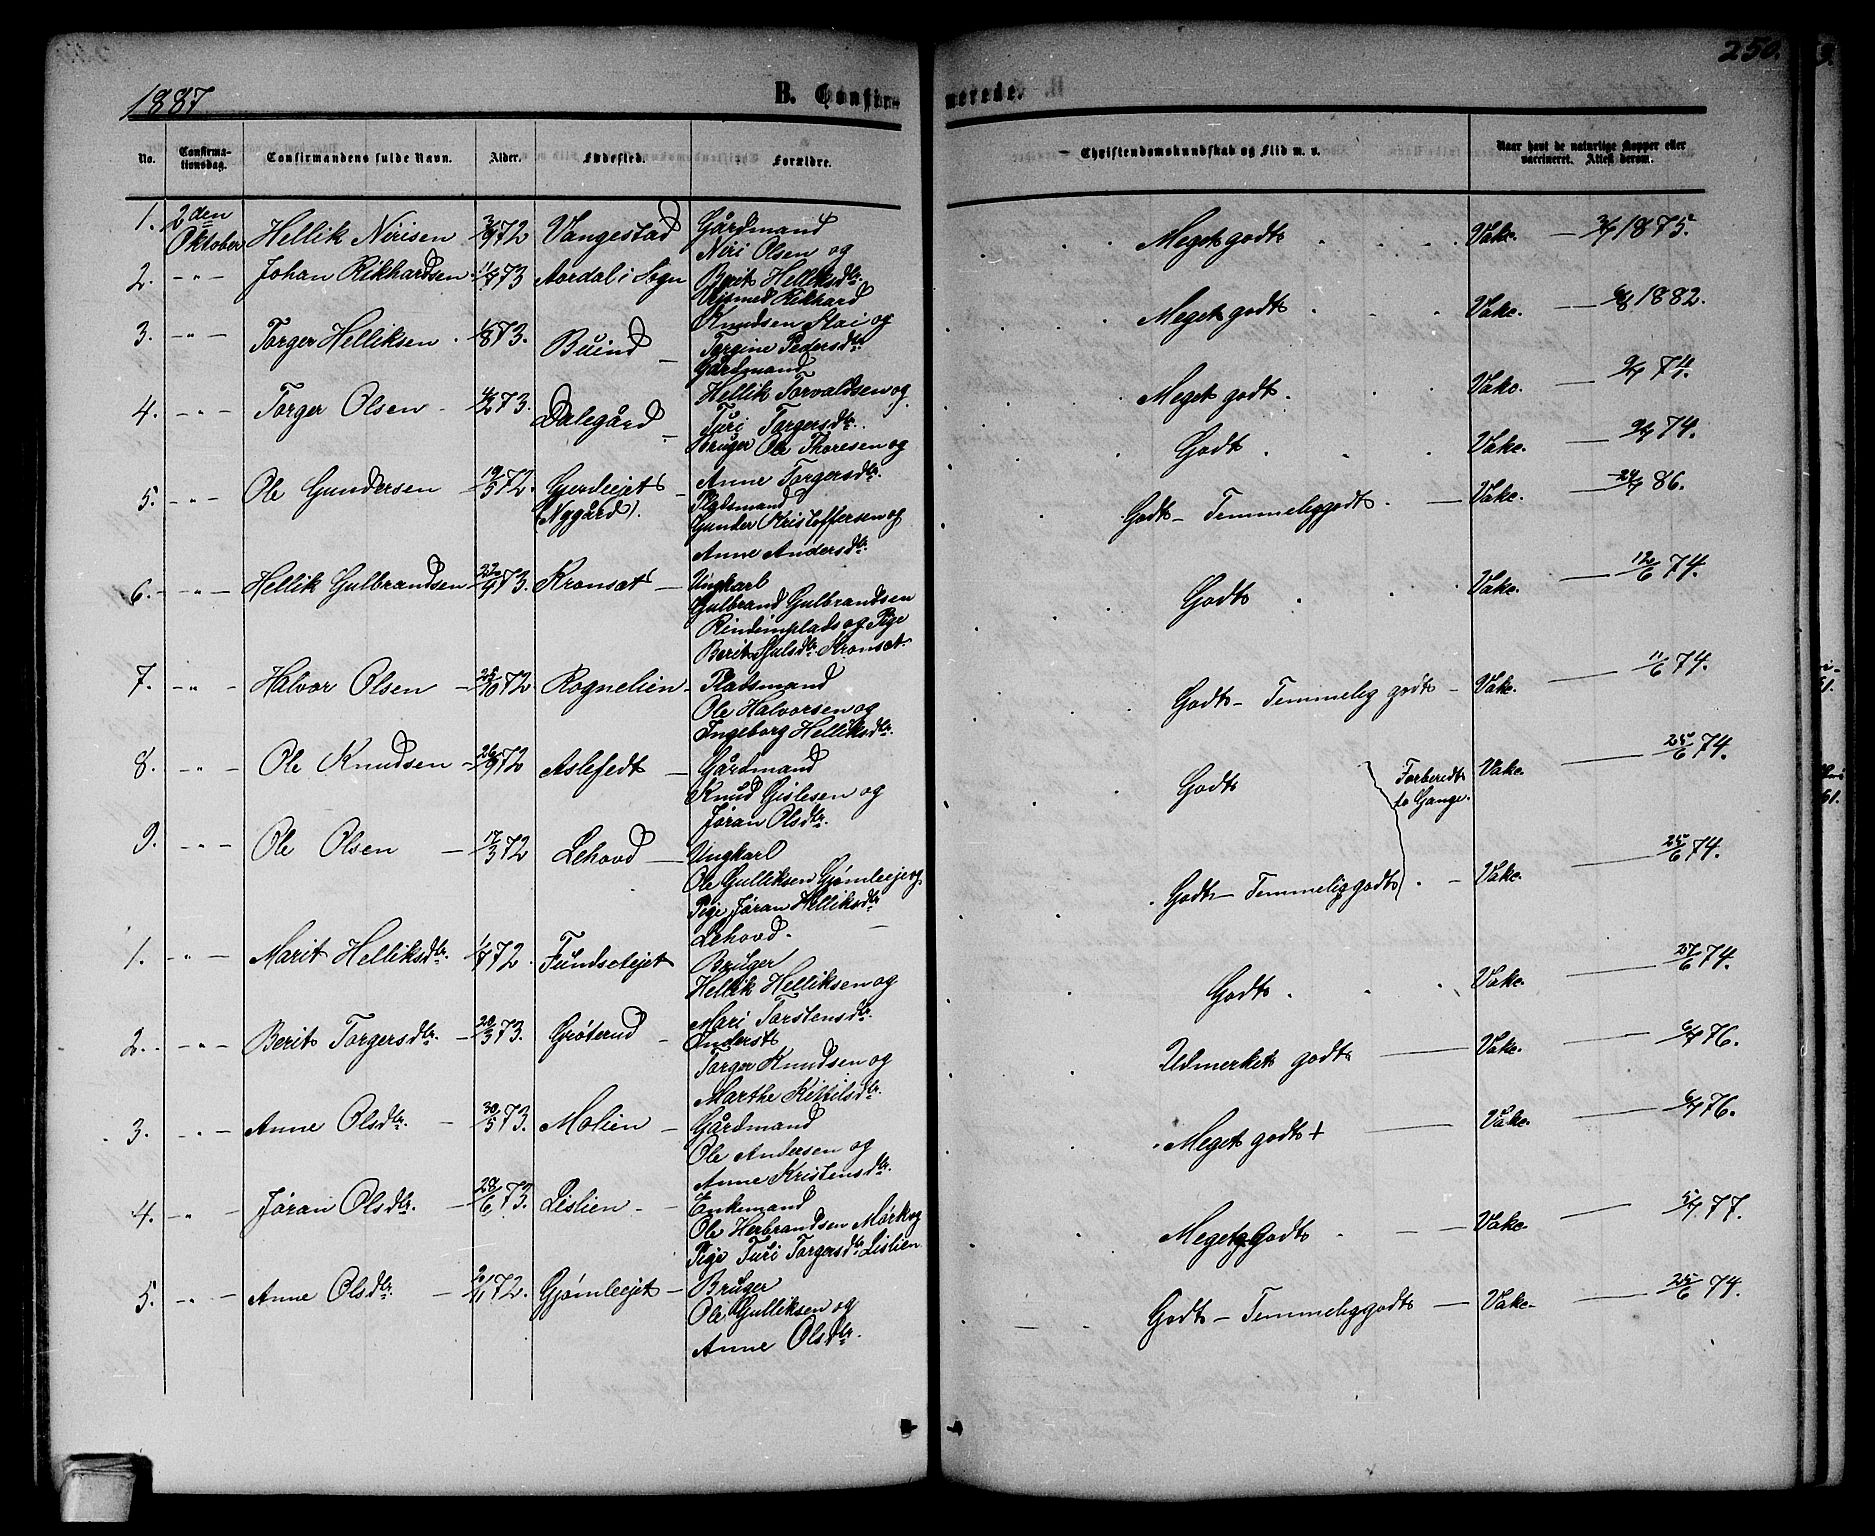 1887
B. Confirmerede.
250.
No.
Confirmationsdag.
Confirmandens fulde Navn.
Alder.
Fødested.
Forældre.
Christendomskundskab og Flid m. v.
Naar havt de naturlige Kopper eller vaccineret. Attest derom.
1. 2den Oktober Hellik Nirisen 3/9 72 Vangestad Gårdmand Niri Olsen og Berit Helliksdtr. Meget godt Vake. 1875.
2. -"- Johan Rikhardsen 73 Aardal i Sogn Rikhard Knudsen og Torgine Pedersdtr. Meget godt Vake. 1882.
3. -"- Torger Helliksen 73. Buind Gårdmand Hellik Torvaldsen og Turi Torgersdtr. Meget godt Vake. 74.
4. -"- Torger Olsen 73. Dalegård Bruger Ole Thoresen og Anne Torgersdtr. Godt Vake. 74.
5. -"- Ole Gundersen 19/5 72. Gjerdeejet (Nygård). Pladsmand Gunder Kristoffersen og Anne Andersdtr. Godt - Temmelig godt Vake. 86.
6. -"- Hellik Gulbrandsen 22/9 73. Kronsat Ungkarl Gulbrand Gulbrandsen Rindemplads og Pige Berit Kronsat. Godt Vake. 12/6 74.
7. -"- Halvor Olsen 72 Rognelien Pladsmand Ole Halvorsen og Ingeborg Helliksdtr. Godt - Temmelig godt Vake. 11/6 74.
8. -"- Ole Knudsen 26/9 72 Aslefedt Gårdmand Knud Gislesen og Jøran Olsdtr. Godt Forberedt to Gange. Vake. 25/6 74.
9. -"- Ole Olsen 17/3 72 Lehovd Ungkarl Ole Gulliksen Gjømleejet og Pige Jøran Helliksdtr Lehovd. Godt - Temmelig godt Vake. 25/6 74.
1. -"- Marit Helliksdtr. 72. Fundsetejet Bruger Hellik Helliksen og Mari Torstensdtr. Godt Vake. 27/6 74.
2. -"- Berit Torgersdtr. 73. Grøterud Inderst Torger Knudsen og Marthe Kittilsdtr. Udmerket godt Vake. 76.
3. -"- Anne Olsdtr. 30/5 73. Molien Gårdmand Ole Andersen og Anne Kristensdtr. Meget godt + Vake. 76.
4. -"- Jøran Olsdtr. 28/6 73. Lislien Enkemand Ole Herbrandsen Mørk og Pige Turi Torgersdtr. Lislien Meget godt Vake. 77.
5. -"- Anne Olsdtr. 72. Gjømleejet Bruger Ole Gulliksen og Anne Olsdtr. Godt - Temmelig godt Vake. 25/6 74.